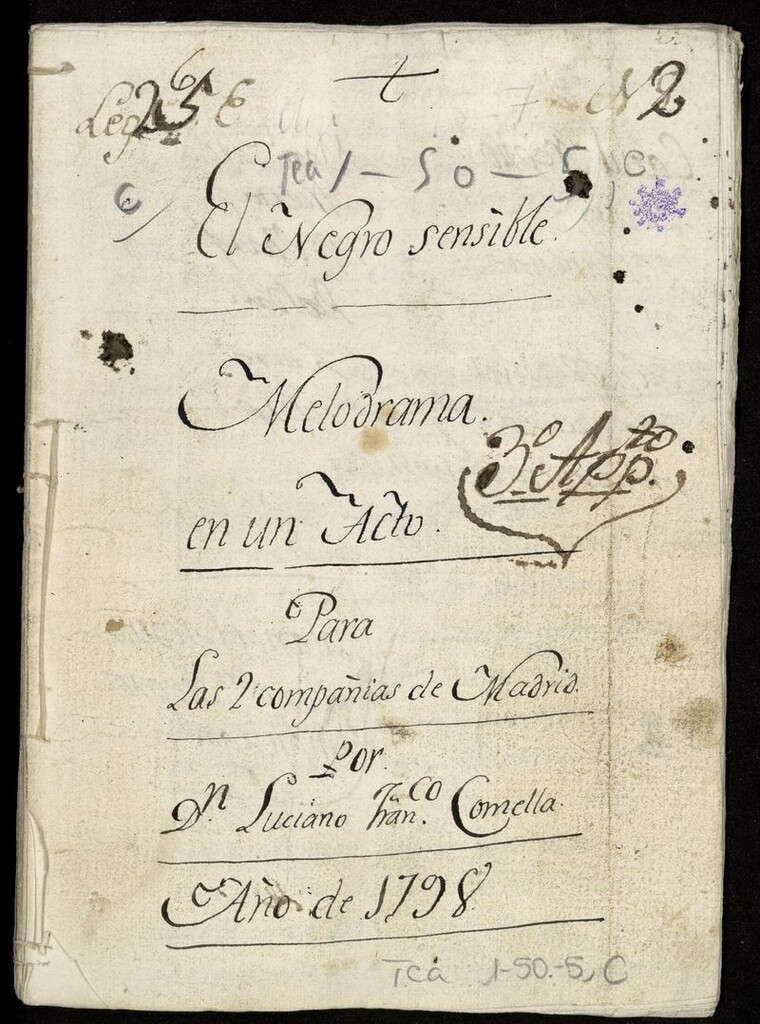 Leg. 25 6 N 2
Tea 1-50-5, C
C
El Negro sensible.
Melodrama.
3º App.to
en un Acto.
Para
Las 2 compañias de Madrid.
Por
Dn. Luciano Fran.co Comella.
Año de 1798
Tea 1-50-5, C